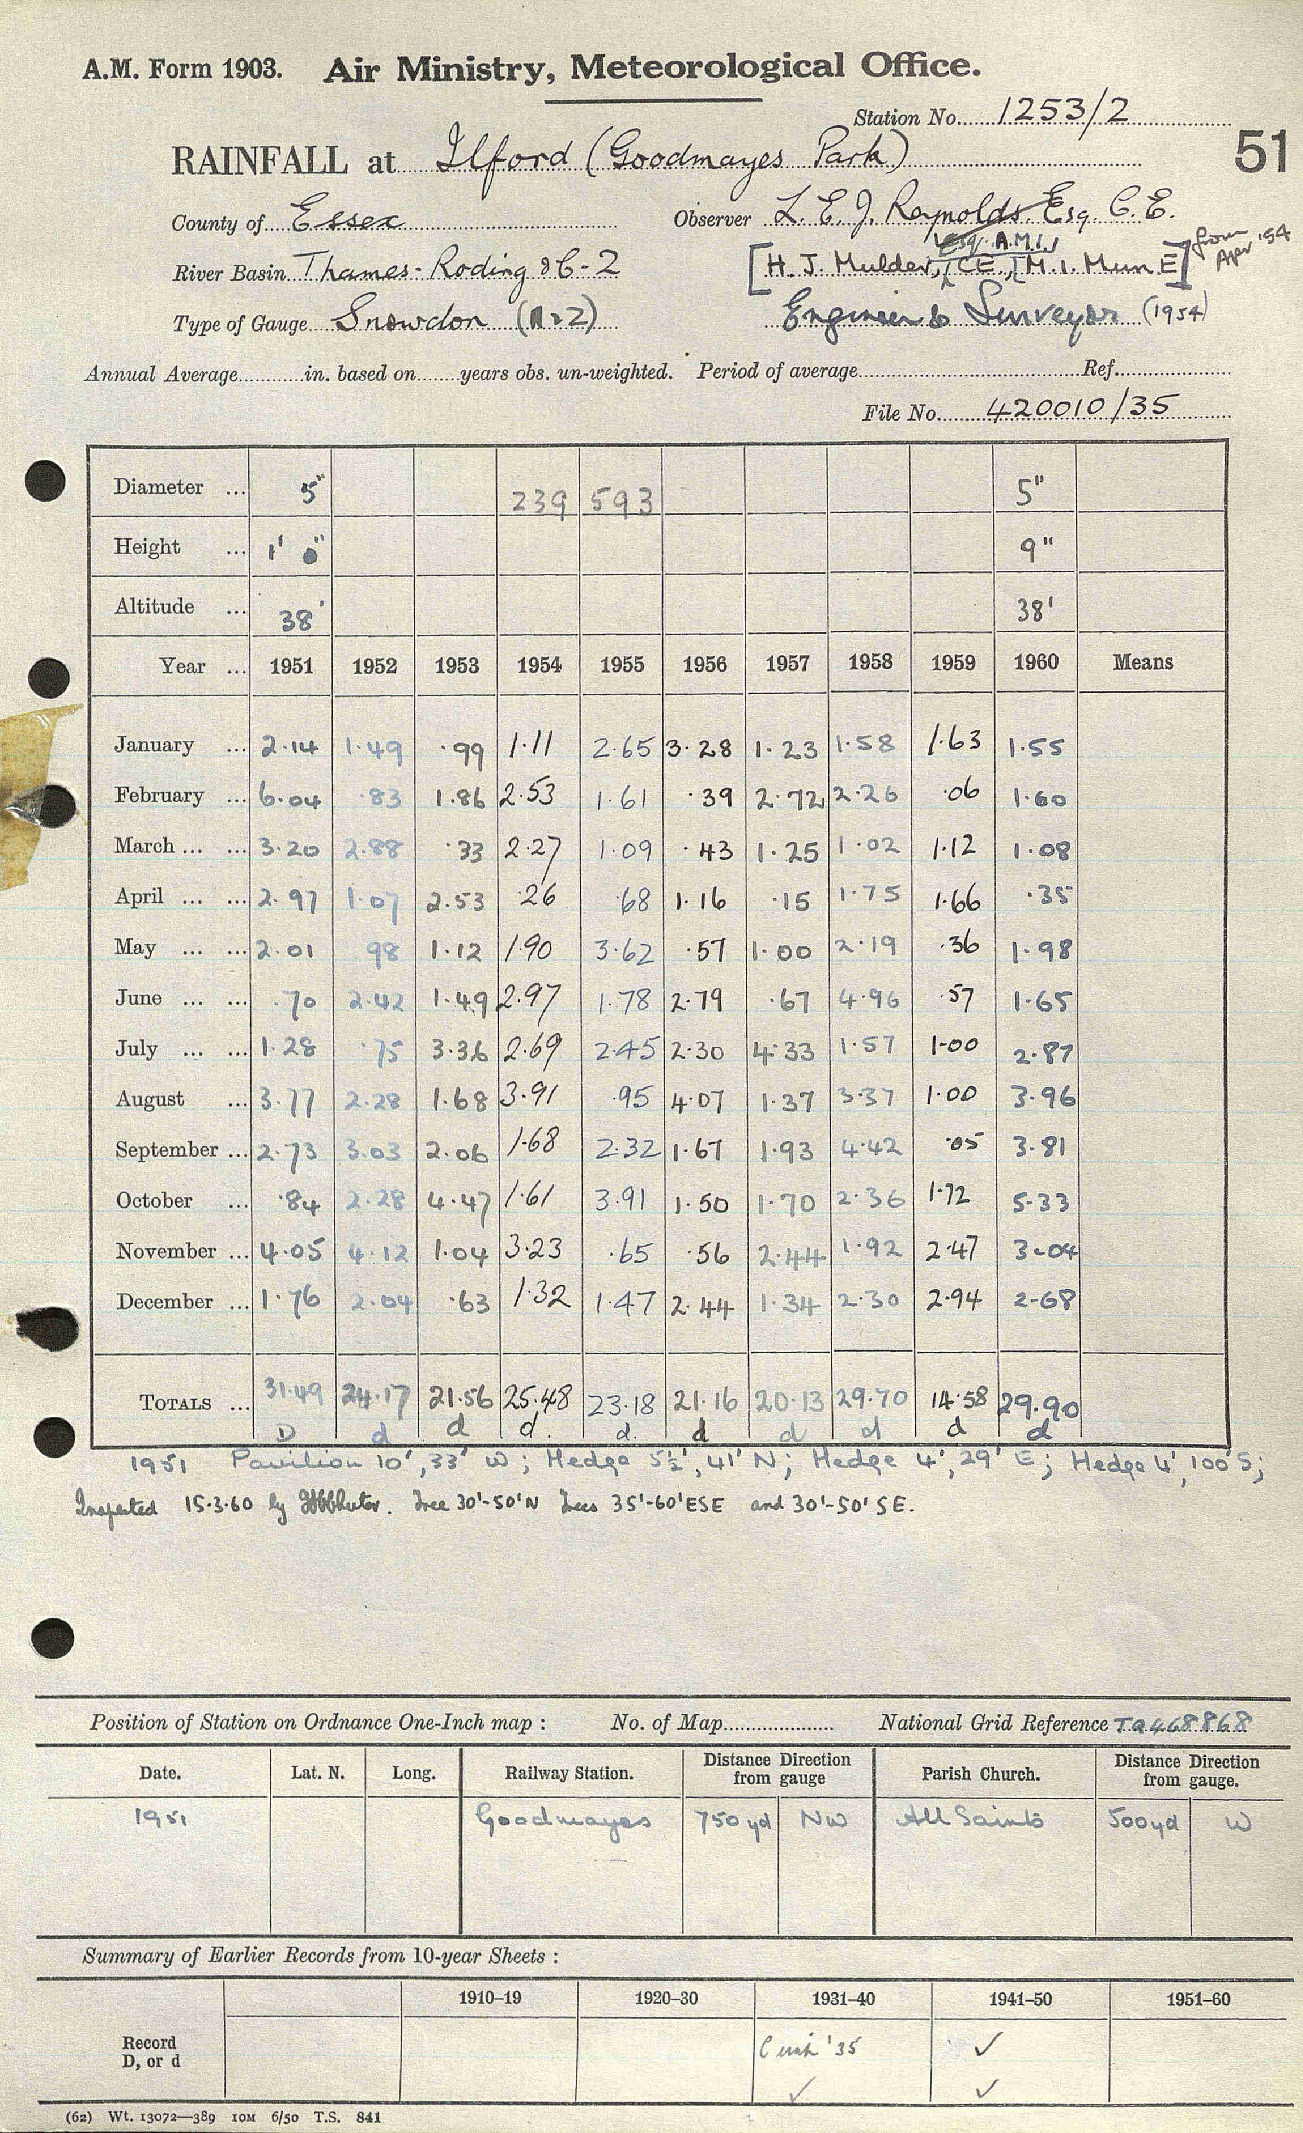 A.M. Form 1903. Air Ministry, Meteorological Office.
Station No. 1253/2
RAINFALL at Ilford (Goodmayes Park) 51
County of Essex Observer L. E. J. Reynolds Esq. C.E.
Esq. A.M.I.
River Basin Thames - Roding [H. J. Mulder, C.E., M.I. Mun E] from Apr '54
Type of Gauge Snowdon Engineer & Surveyor (1954)
Annual Average in. based on years obs. un-weighted. Period of average Ref.
File No. 420010/35
Diameter ... 5" 239 593 5"
Height ... 1' 9"
Altitude ... 38' 38'
Year ... 1951 1952 1953 1954 1955 1956 1957 1958 1959 1960 Means
January ... 2.14 1.49 .99 1.11 2.65 3.28 1.23 1.58 1.63 1.55
February ... 6.04 .83 1.86 2.53 1.61 .39 2.72 2.26 .06 1.60
March ... ... 3.20 2.88 .33 2.27 1.09 .43 1.25 1.02 1.12 1.08
April ... ... 2.97 1.07 2.53 .26 .68 1.16 .15 1.75 1.66 .35
May ... ... 2.01 98 1.12 1.90 3.62 .57 1.00 2.19 .36 1.98
June ... ... .70 2.42 1.49 2.97 1.78 2.79 .67 4.96 .57 1.65
July ... ... 1.28 .75 3.36 2.69 2.45 2.30 4.33 1.57 1.00 2.87
August ... 3.77 2.28 1.68 3.91 .95 4.07 1.37 3.37 1.00 3.96
September ... 2.73 3.03 2.06 1.68 2.32 1.67 1.93 4.42 .05 3.81
October ... .84 2.28 4.47 1.61 3.91 1.50 1.70 2.36 1.72 5.33
November ... 4.05 4.12 1.04 3.23 .65 .56 2.44 1.92 2.47 3.04
December ... 1.76 2.04 .63 1.32 1.47 2.44 1.34 2.30 2.94 2.68
TOTALS ... 31.49 24.17 21.56 25.48 23.18 21.16 20.13 29.70 14.58 29.90
D d d d. d. d d d d d
1951 Pavilion 10', 33' W; Hedge 5½', 41' N; Hedge 4', 29' E; Hedge 4', 100' S;
Inspected 15.3.60 by Tree 30'-50'N Trees 35'-60'ESE and 30'-50'SE.
Position of Station on Ordnance One-Inch map : No. of Map National Grid Reference TQ468868
Date. Lat. N. Long. Railway Station. Distance Direction from gauge Parish Church. Distance Direction from gauge.
1951 Goodmayes 750yd NW All Saints 500yd W
Summary of Earlier Records from 10-year Sheets :
1910–19 1920–30 1931–40 1941–50 1951–60
Record '35 ✓
D, or d ✓ ✓
(62) Wt. 13072—389 10M 6/50 T.S. 841